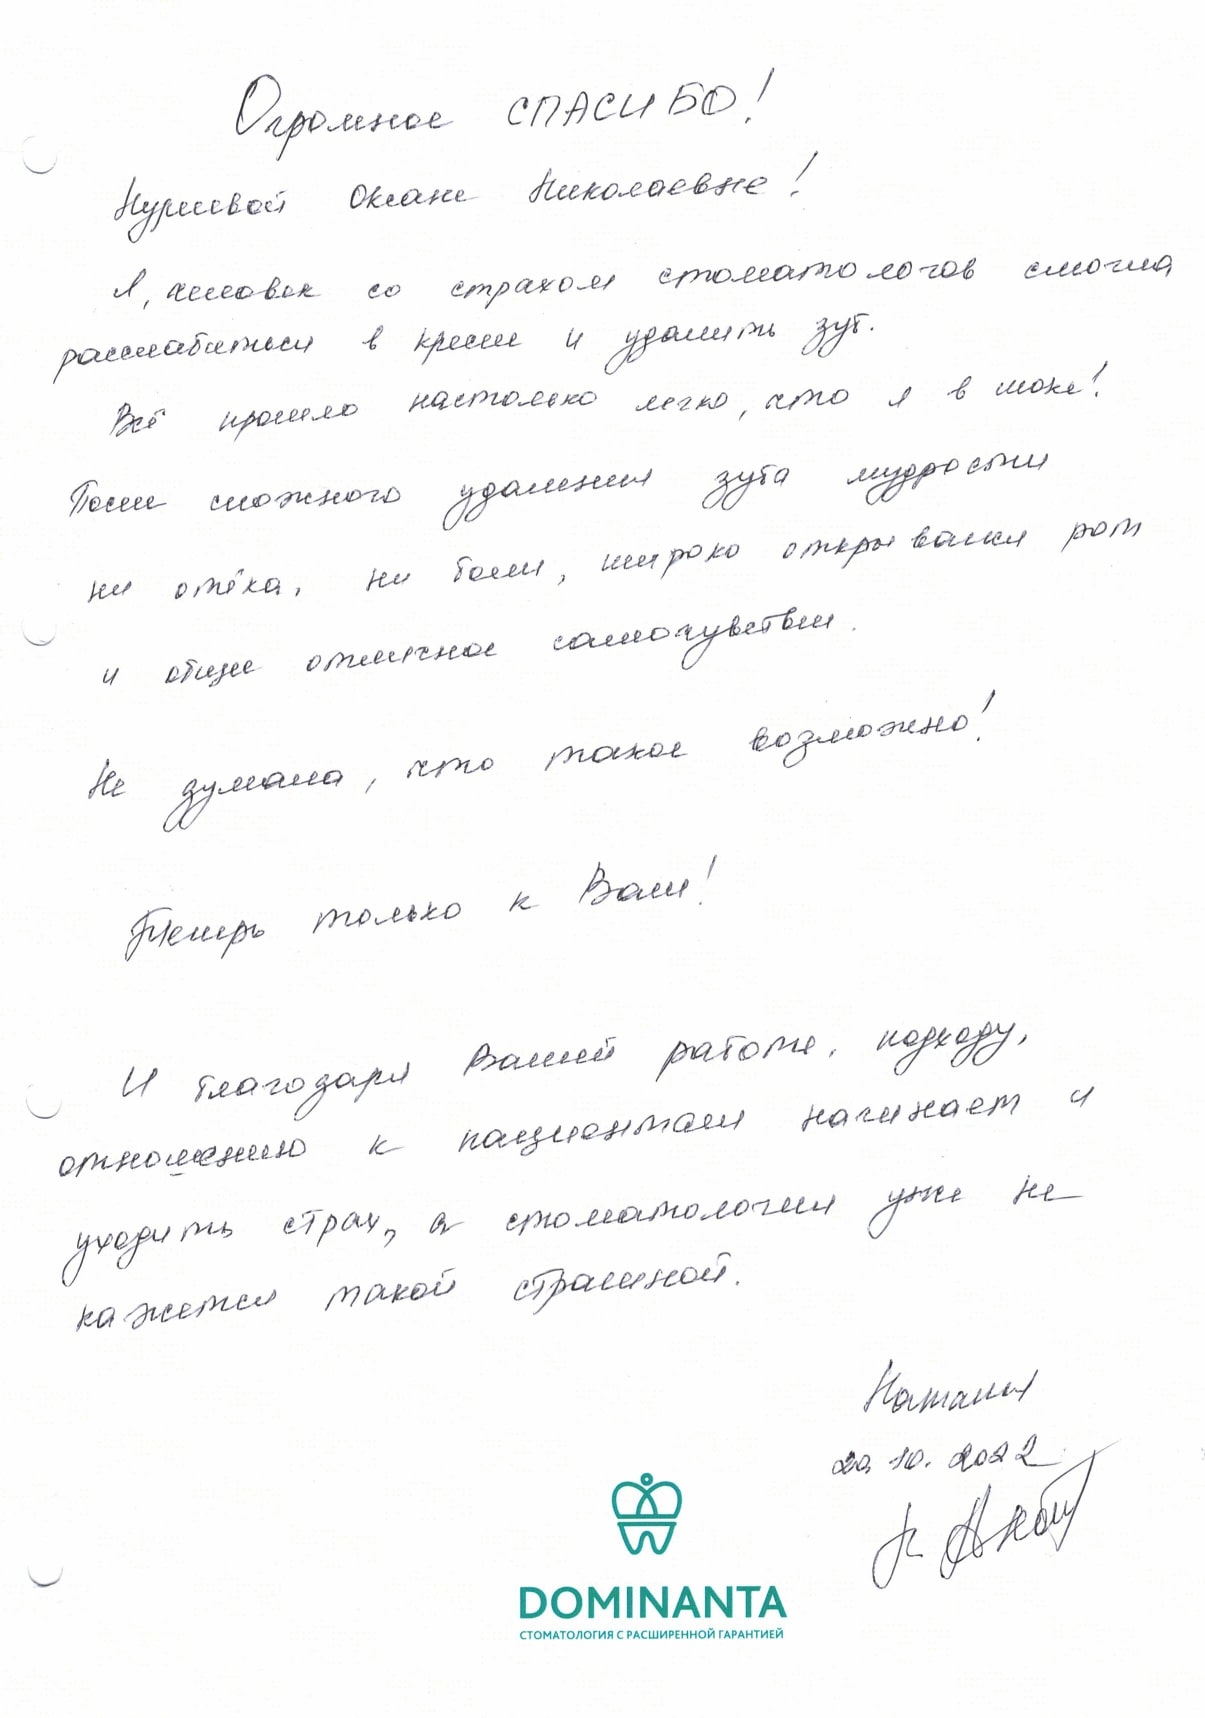 Огромное СПАСИБО!
Оксане Николаевне!
Я, человек со страхом стоматологов смогла
расслабиться в кресле и удалить зуб.
Всё прошло настолько легко, что я в шоке!
После сложного удаления зуба мудрости
ни отёка, ни боли, широко открывался рот
и общее отличное самочувствие.
Не думала, что такое возможно!
Теперь только к Вам!
И благодаря Вашей работе, подходу,
отношению к пациентам начинает и
уходить страх, а стоматология уже не
кажется такой страшной.
Наталья
20.10.2022
DOMINANTA
СТОМАТОЛОГИЯ С РАСШИРЕННОЙ ГАРАНТИЕЙ